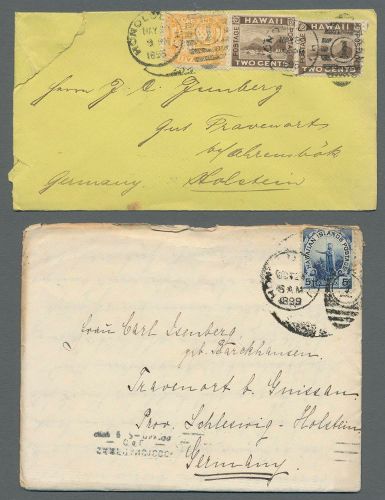 HONOLU
MAY
9 AM
1895
HAWAII
POSTAGE
TWO CENTS
HAWAII
POSTAGE
TWO CENTS
Herrn J. C. Isenberg
Gut Travenort
b/Ahrensbök
Germany Holstein
HAWAIIAN ISLANDS POSTAGE
5
6 AM
1899
Frau Carl Isenberg,
geb. Barckhausen.
Travenort b. Gnissau
Prov. Schleswig-Holstein
Germany.